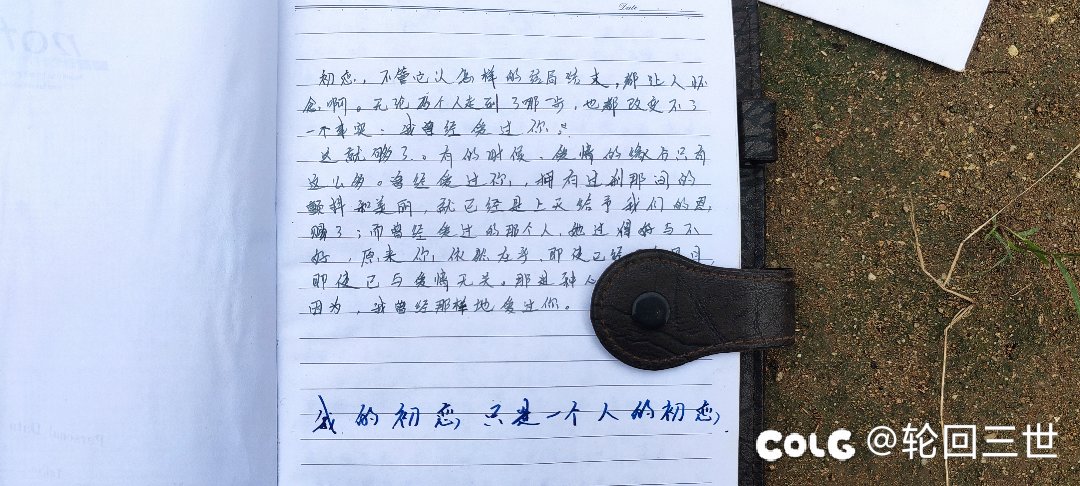 Date
初恋，不管它以怎样的结局结束，都让人怀
念啊。无论两个人走到了哪一步，也都改变不了
一个事实：我曾经爱过你。
这就够了。有的时候，爱情的缘分只有
这么多。曾经爱过你，拥有过刹那间的
颤抖和美丽，就已经是上天给予我们的恩
赐了；而曾经爱过的那个人，她过得好与不
好，原来你依然在乎，即使已经
即使已与爱情无关。那是种
因为，我曾经那样地爱过你。
我的初恋，只是一个人的初恋，
Personal Data
COLG @轮回三世